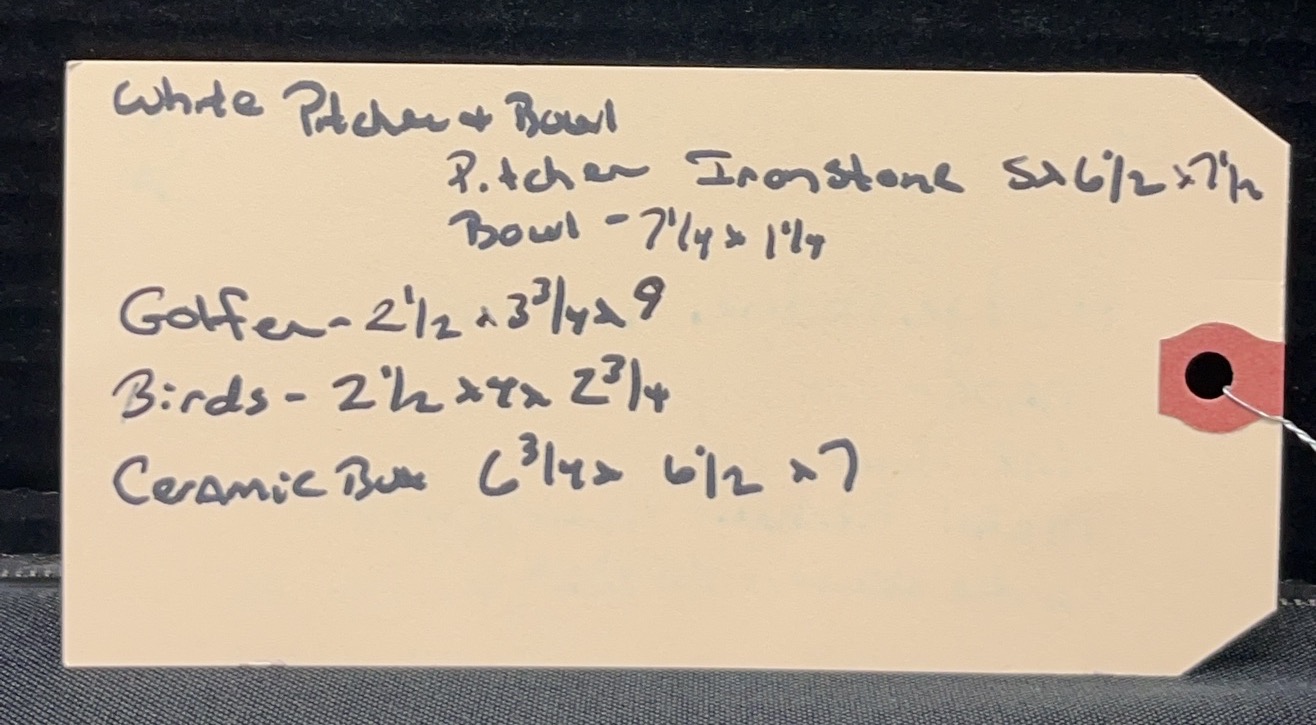 White Pitcher + Bowl
Pitcher Ironstone 5x6 1/2 x 7 1/2
Bowl - 7 1/4 x 1 1/4
Golfer - 2 1/2 x 3 3/4 x 9
Birds - 2 1/2 x 4 x 2 3/4
Ceramic Box 6 3/4 x 6 1/2 x 7